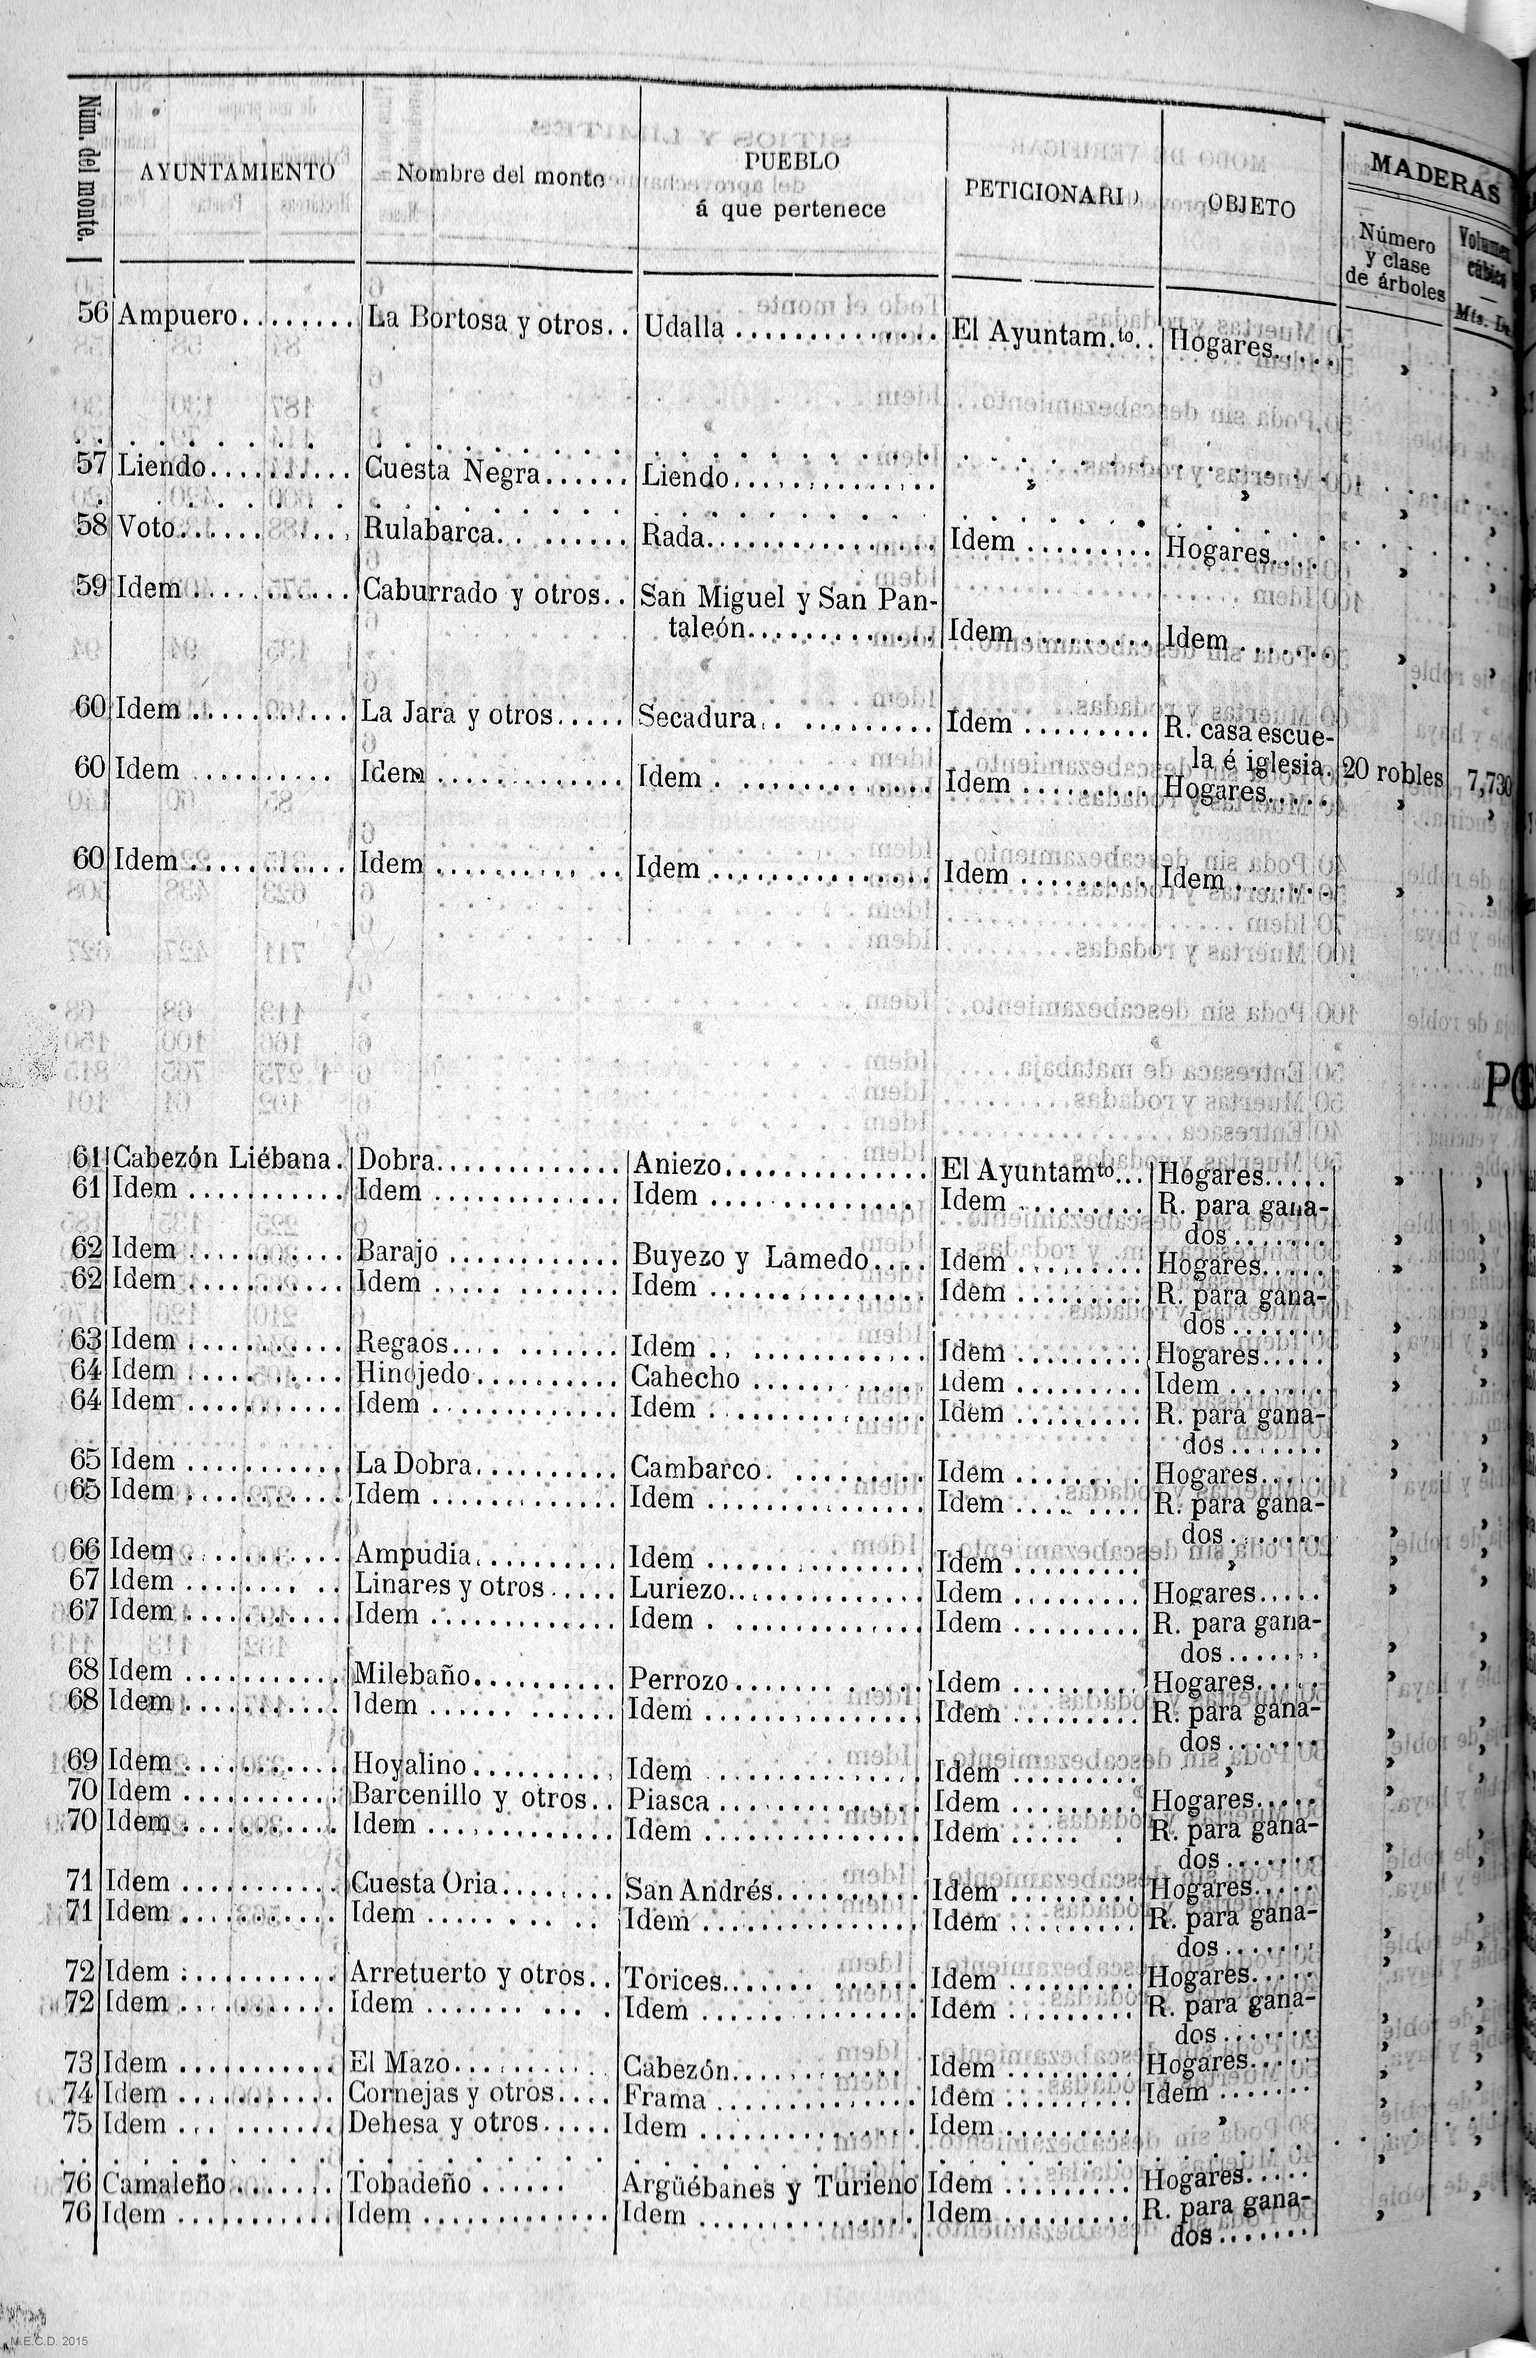 Núm. del monte. AYUNTAMIENTO Nombre del monte PUEBLO á que pertenece PETICIONARIO OBJETO MADERAS
Número y clase de árboles Volumen cúbico — Mts.
56 Ampuero........ La Bortosa y otros.. Udalla ............. El Ayuntam.to.. Hogares..... » »
57 Liendo.......... Cuesta Negra...... Liendo............. » » » »
58 Voto........... Rulabarca......... Rada............... Idem ......... Hogares.... » »
59 Idem .......... Caburrado y otros.. San Miguel y San Pan-
taleón............. Idem ......... Idem ....... » »
60 Idem .......... La Jara y otros..... Secadura.......... Idem ......... R. casa escue-
la é iglesia. 20 robles 7,730
60 Idem .......... Idem ............. Idem ............. Idem ......... Hogares..... » »
60 Idem .......... Idem ............ Idem .............. Idem ......... Idem ....... » »
61 Cabezón Liébana. Dobra............. Aniezo............. El Ayuntamto... Hogares..... » »
61 Idem ........... Idem ............. Idem ............. Idem ......... R. para gana-
dos ....... » »
62 Idem ........... Barajo ............ Buyezo y Lamedo.... Idem ......... Hogares..... » »
62 Idem ........... Idem ............ Idem .............. Idem ......... R. para gana-
dos ....... » »
63 Idem ........... Regaos............ Idem .............. Idem ......... Hogares..... » »
64 Idem ........... Hinojedo.......... Cahecho ........... Idem ......... Idem ....... » »
64 Idem ........... Idem ............. Idem .............. Idem ......... R. para gana-
dos ....... » »
65 Idem ........... La Dobra.......... Cambarco. ......... Idem ......... Hogares..... » »
65 Idem ........... Idem ............. Idem .............. Idem ......... R. para gana-
dos ....... » »
66 Idem ........... Ampudia.......... Idem .............. Idem ......... » » »
67 Idem ........... Linares y otros ..... Luriezo............. Idem ......... Hogares..... » »
67 Idem ........... Idem ............. Idem .............. Idem ......... R. para gana-
dos ....... » »
68 Idem ........... Milebaño.......... Perrozo............ Idem ......... Hogares..... » »
68 Idem ........... Idem ............. Idem .............. Idem ......... R. para gana-
dos ....... » »
69 Idem ........... Hoyalino.......... Idem .............. Idem ......... » » »
70 Idem ........... Barcenillo y otros.. Piasca ............. Idem ......... Hogares..... » »
70 Idem ........... Idem ............. Idem .............. Idem ..... . R. para gana-
dos ....... » »
71 Idem ........... Cuesta Oria........ San Andrés......... Idem ......... Hogares..... » »
71 Idem ........... Idem ............ Idem .............. Idem ......... R. para gana-
dos ....... » »
72 Idem ........... Arretuerto y otros.. Torices............. Idem ......... Hogares..... » »
72 Idem ........... Idem ............ Idem .............. Idem ......... R. para gana-
dos ....... » »
73 Idem ........... El Mazo........... Cabezón........... Idem ......... Hogares..... » »
74 Idem ........... Cornejas y otros.... Frama ............. Idem ......... Idem ....... » »
75 Idem ........... Dehesa y otros..... Idem .............. Idem ......... » » »
76 Camaleño ....... Tobadeño ...... Argüébanes y Turieno Idem ......... Hogares..... » »
76 Idem ........... Idem ............. Idem .............. Idem ......... R. para gana-
dos ....... »
M.E.C.D. 2015